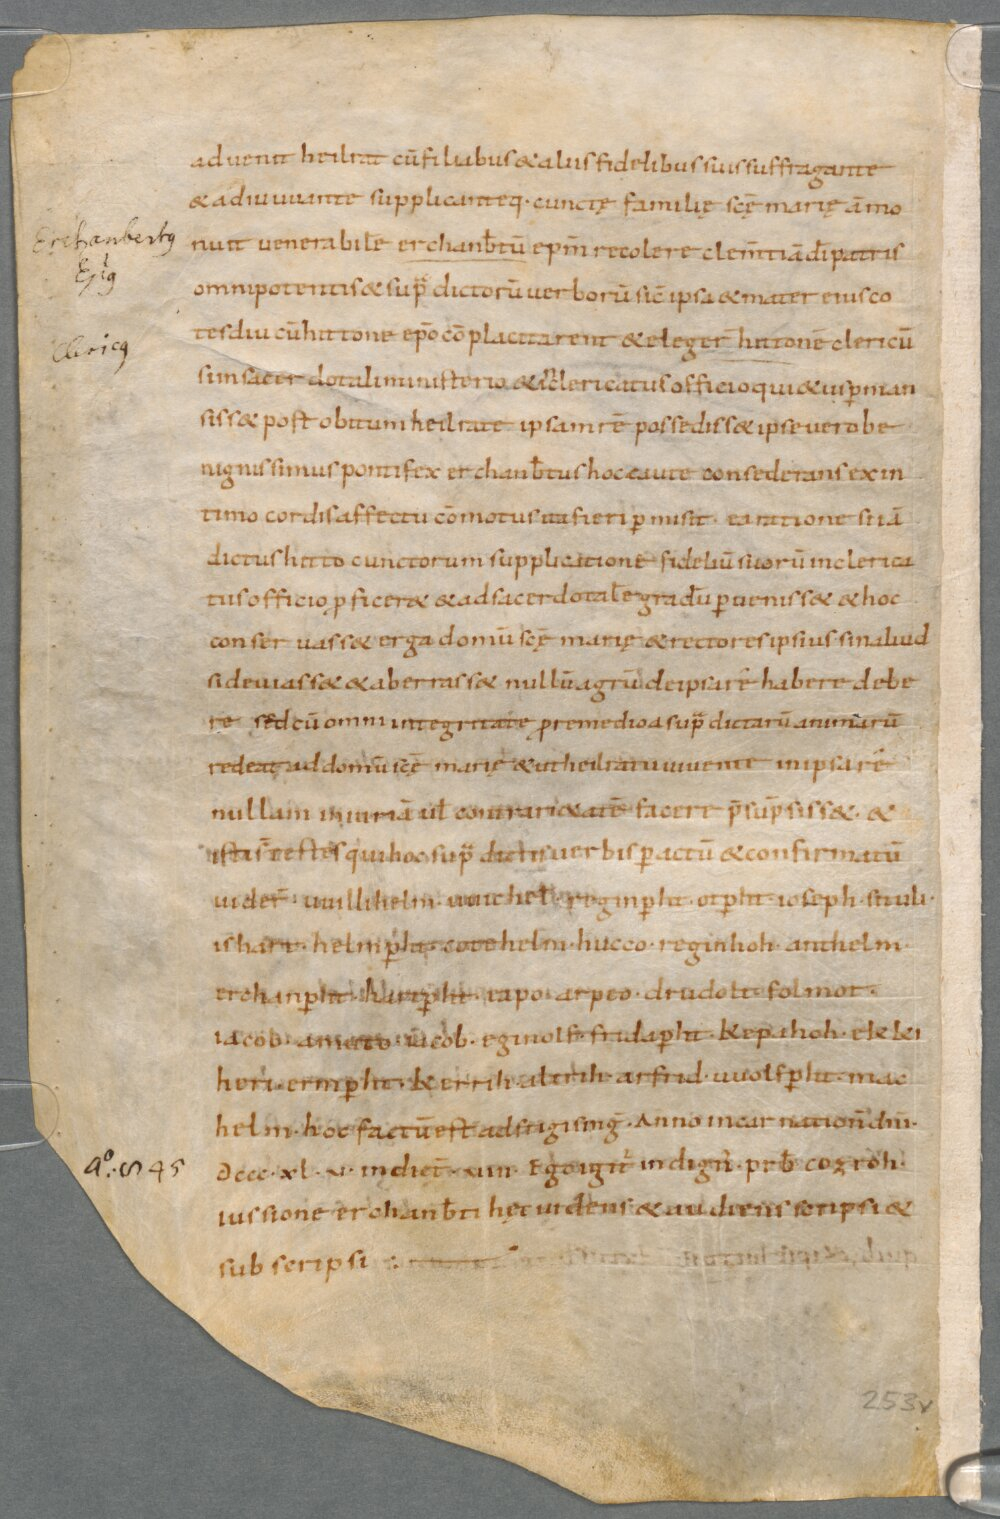 aduenit heilrat cū filiabus & aliis fidelibus suis suffragante
& adiuuuante supplicanteq· cunctę familię scę marię āmo
Erchanbertꝰ
nuit uenerabilē erchanb̄tū ep̄m recolere clem̄tiā dī patris
Ep̄ꝰ
omnipotentis & sup̄ dictorū uerborū sic̄ ipsa & mater eius co
tesdiu cū hittone ep̄o cōplacitarent & eleger̄ hittonē clericū
Clericꝰ
sim sacerdotali ministerio & clericatus officio qui & ius p̄man
siss& post obitum heilrate ipsam rē possediss& ipse uero be
nignissimus pontifex erchanb̄tus hoc caute consederans ex in
timo cordis affectu cōmotus ita fieri p̄misit· ea ratione si iā
dictus hitto cunctorum supplicatione fideliū suorū in clerica
tus officio p̄ficer& & ad sacerdotalē gradū p̄ueniss& & hoc
conseruass& erga domū scę marię & rectores ipsius sin aliud
si deuiass& & aberrass& nullū agrū de ipsa rē habere debe
re sed cū omni integritate p̄ remedio a sup̄ dictarū animarū
redeat ad domū scę marię & ut heilratu uiuente in ipsa rē
nullam iniuriā ul̄ contrari&atē facere p̄sūpsiss&· &
istis testes qui hoc sup̄ dictis uerbis p̄actū & confirmatū
uider̄· uuillihelm· uuichelm· reginp̄ht· otp̄ht· ioseph· stiuli·
ishart· helmp̄ht· cotehelm· hucco· reginhoh· anthelm·
erchanp̄ht· harip̄ht· tapo· arpeo· drudolt· folmot·
iacob· amato· iacob· eginolf· fridap̄ht· kepahoh· ekki
heri· ermp̄ht· kerrih· alirih· arfrid· uuolfp̄ht· mac
helm· hoc factū est ad stigisinḡ· Anno incarnation̄ dn̄i·
aº· 845
dccc·xl·v· indict̄· viii· Ego igit̄ indign̄· prb̄ cozroh·
iussione erchanb̄ti hęc uidens & audiens scripsi &
subscripsi
253v